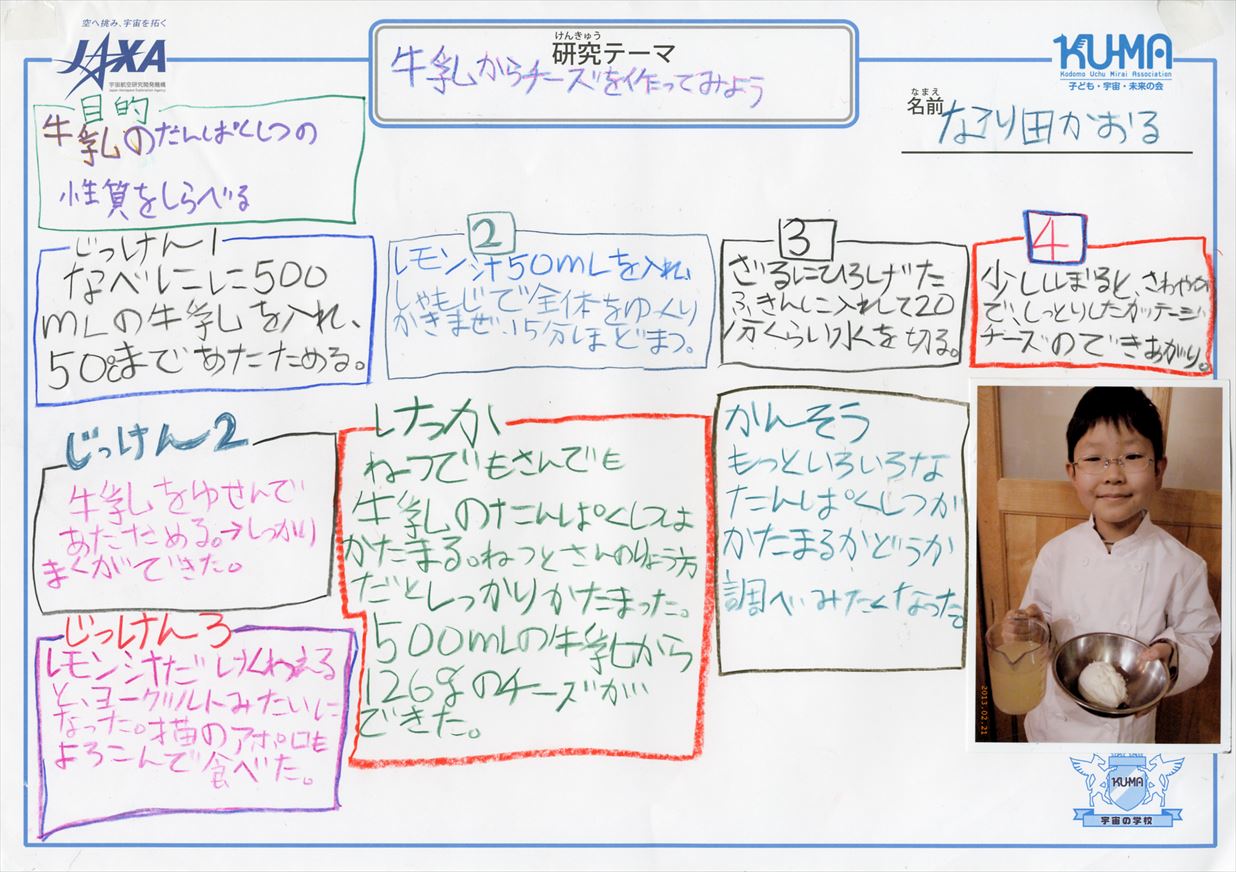 空へ挑み、宇宙を拓く
JAXA
宇宙航空研究開発機構
Japan Aerospace Exploration Agency
けんきゅう
研究テーマ
牛乳からチーズを作ってみよう
KU-MA
Kodomo Uchu Mirai Association
子ども・宇宙・未来の会
なまえ
名前
田かおる
目的
牛乳のたんぱくしつの
性質をしらべる
じっけん1
なべにに500
mLの牛乳を入れ、
50℃まであたためる。
2
レモン汁50mLを入れ、
しゃもじで全体をゆっくり
かきまぜ、15分ほどまつ。
3
ざるにひろげた
ふきんに入れして20
分くらい水を切る。
4
少ししぼると、さわやか
で、しっとりしたカッテージ
チーズのできあがり。
じっけん2
牛乳をゆせんで
あたためる。→しっかり
まくができた。
じっけん3
レモン汁だけくわえる
と、ヨーグルトみたいに
なった。猫のアポロも
よろこんで食べた。
けっか
ねつでもさんでも
牛乳のたんぱくしつは
かたまる。ねつとさんのりょう方
だとしっかりかたまった。
500mLの牛乳から
126gのチーズが
できた。
かんそう
もっといろいろな
たんぱくしつが
かたまるかどうか
調べいみたくなった。
2013.02.21
KUMA
宇宙の学校